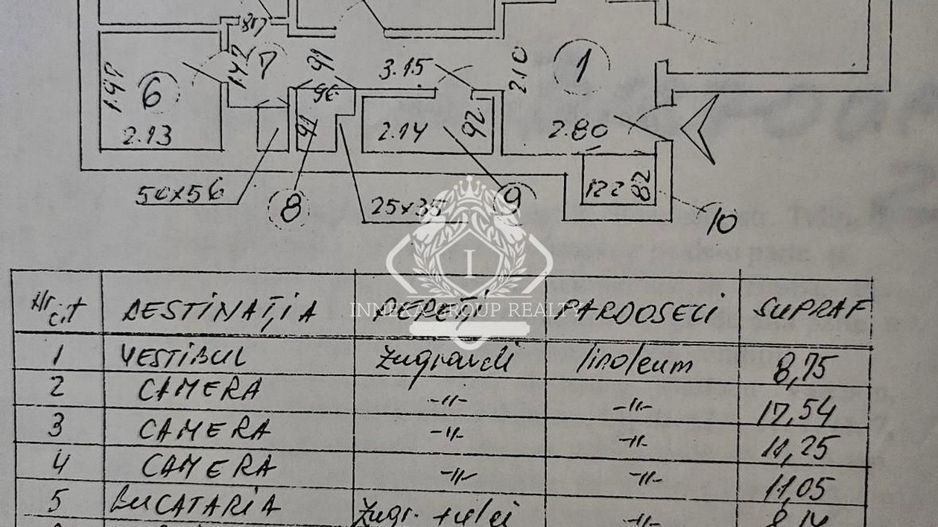 80
91
3.15
2.10
1
1.47
7
1.97
6
96
2.13
91
2.14
92
2.80
122
82
50x56
8
25x35
9
10
I
INNOVA GROUP REALTY
Nr. crt DESTINAȚIA PEREȚI PARDOSELI SUPRAF
1 VESTIBUL zugraveli linoleum 8,75
2 CAMERA -11- -11- 17,54
3 CAMERA -11- -11- 11,25
4 CAMERA -11- -11- 11,05
5 BUCATARIA zugr. +ulei -11- 8,14